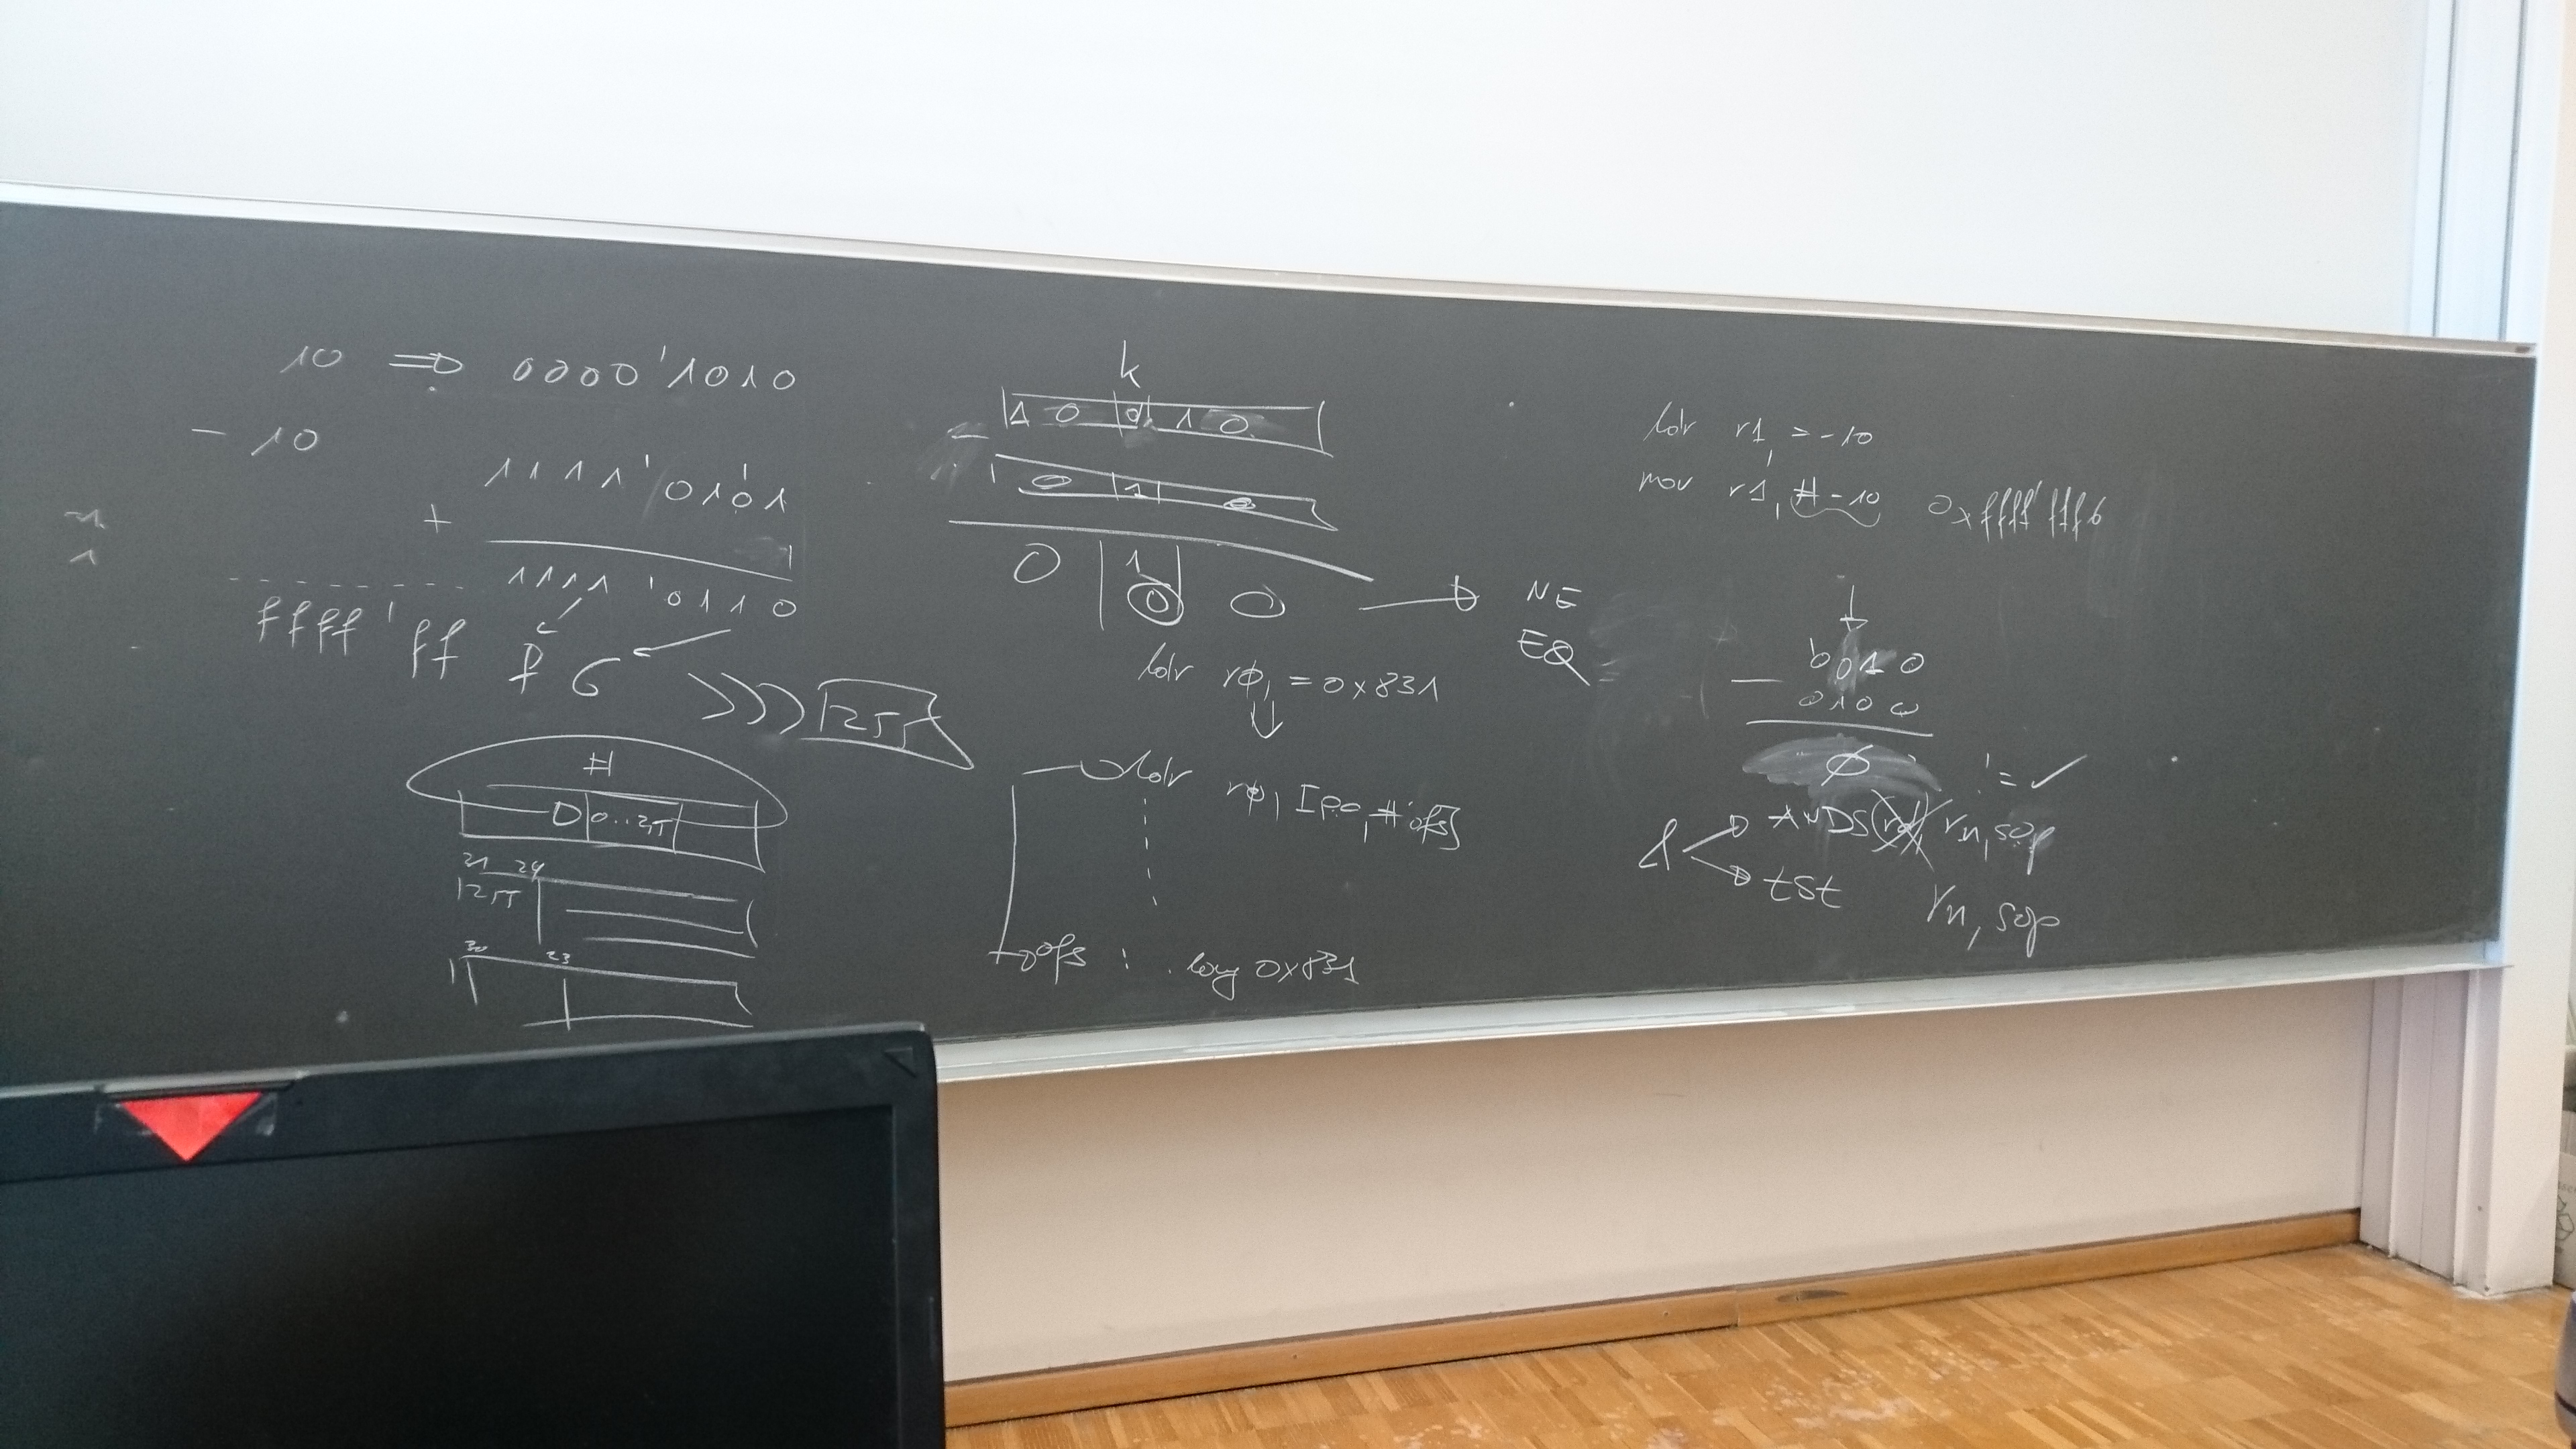 10 ⇒ 0000'1010
- 10
1111'0101
+ 1
1111'0110
ffff'ff f 6
>>> 255
#
0..255
31 24
255
30 23
k
1 0 0 1 0
0 1 0
0 1 0
0
NE
EQ
ldr rø, =0x831
ldr rø, [pc, #ofs]
ofs : .long 0x831
ldr r1, =-10
mov r1, #-10 0xffff'fff6
0100
ø != ✓
& ANDS rd, rn, sop
tst rn, sop